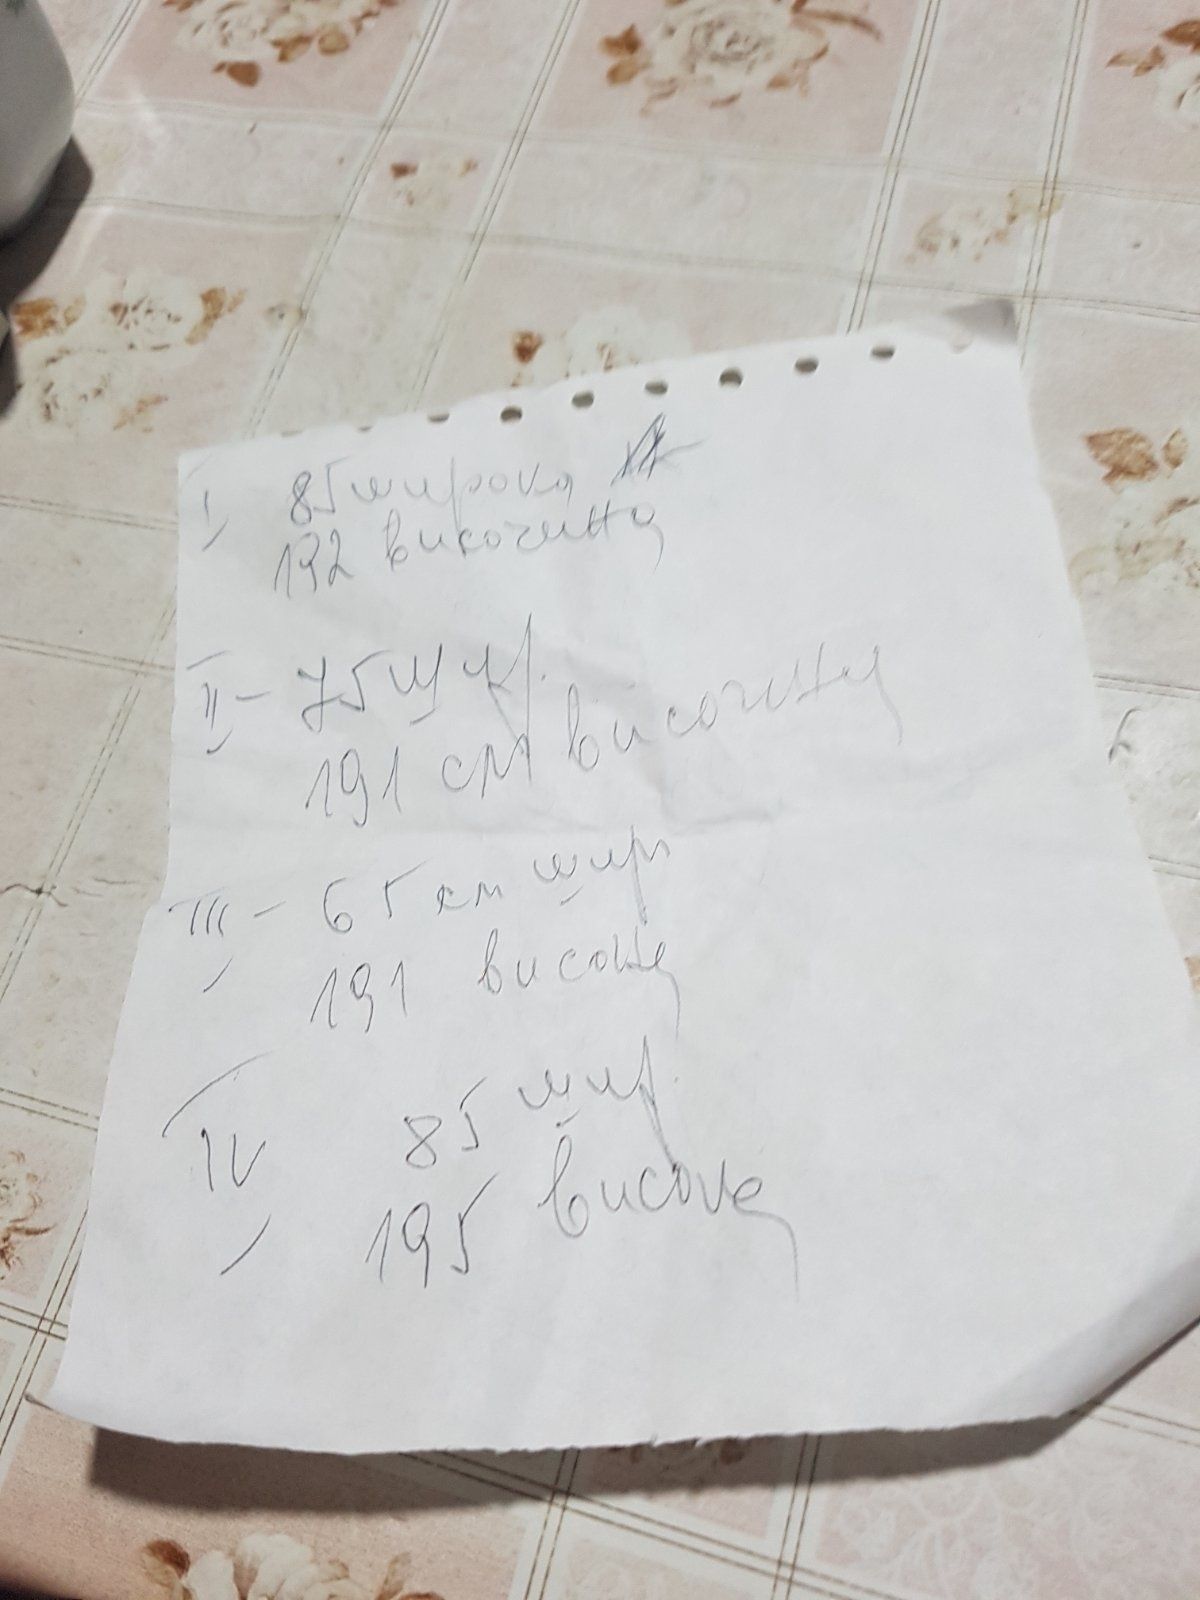 I 85 широка
192 височина
II - 75 шир.
191 см височина
III - 65 см шир
191 висока
IV 85 шир.
195 висока